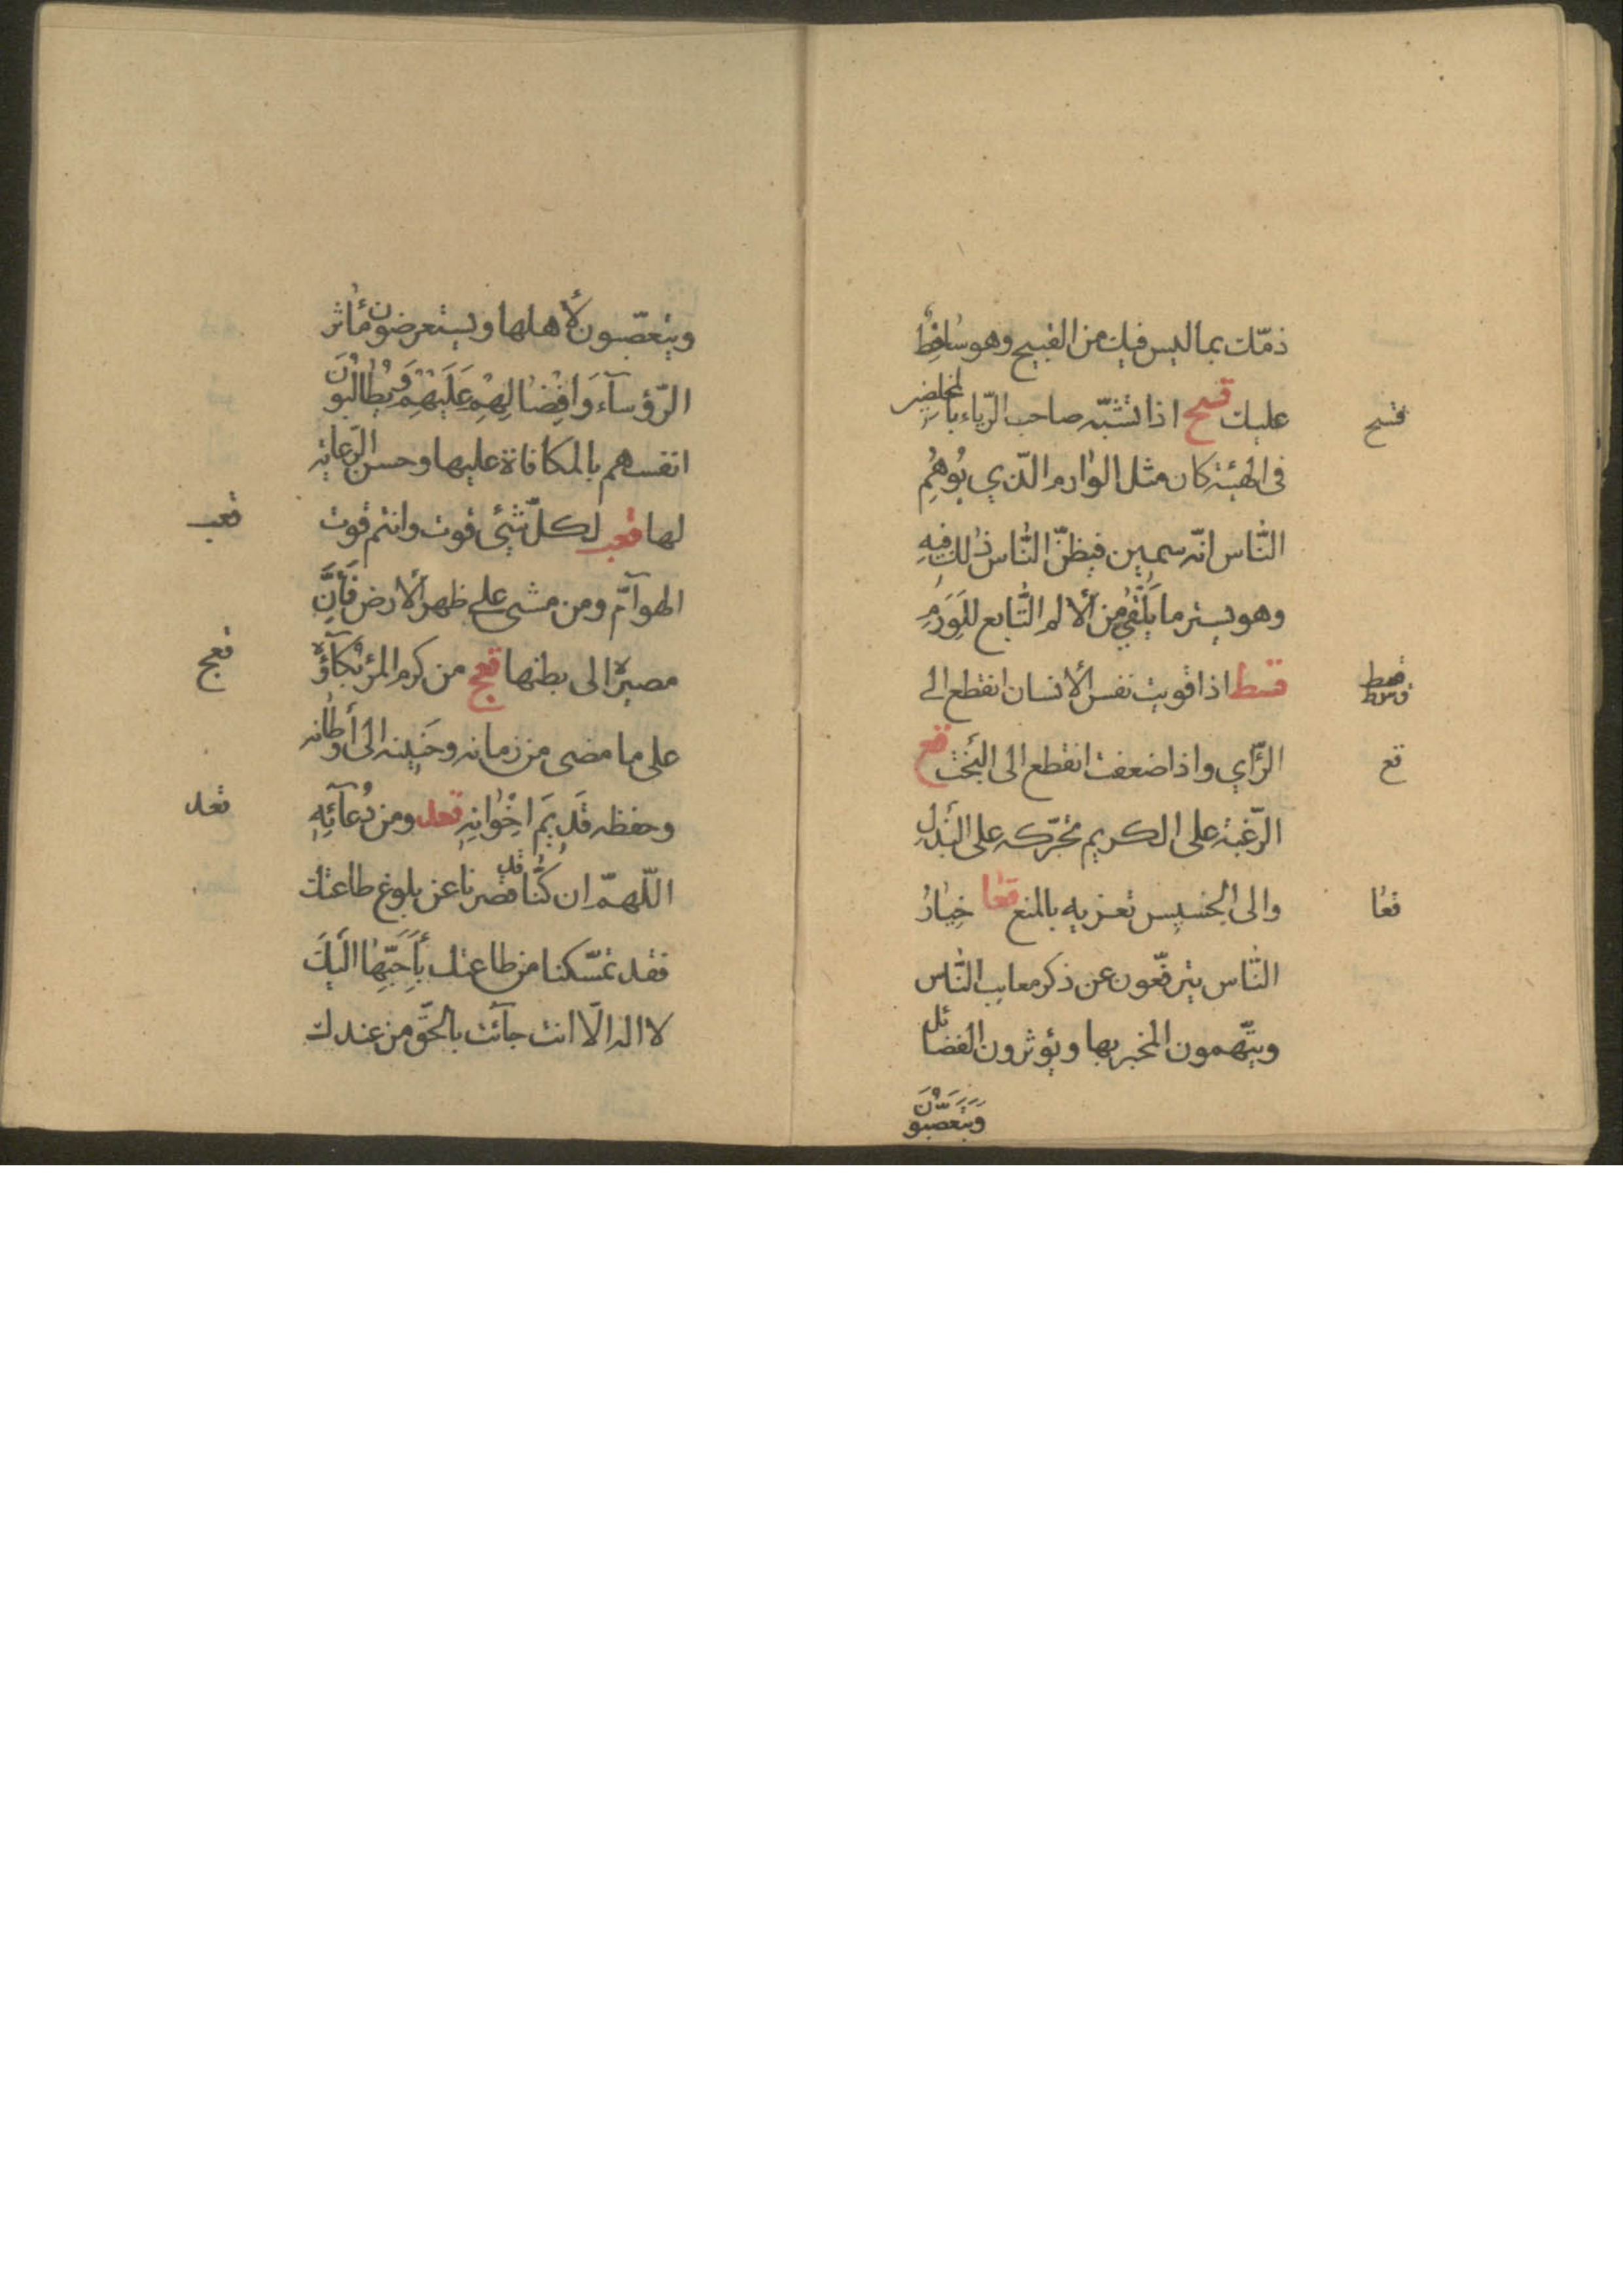 ذمّك بما ليس فيك من القبيح وهو ساخِطٌ
عليك قسح اذا تشبّه صاحب الرّياء بالمخلصين
قسح
فى الهيئة كان مثل الوارم الّذي يُوهِمُ
النّاس انّه سمين فيظنّ النّاس ذلك فيهِ
وهو يستر ما يَلْقٰى من الألم التّابع للوَرَمِ
قسط اذا قويت نفس الأنسان انقطع الى
قسط
الرّأي واذا ضعفت انقطع الى البَخْت قع
قع
الرّغبة على الكريم تحرّكه على البَذْلِ
والى الخسيس تغريه بالمنع قعا خِيٰارُ
قعا
النّاس يترفّعون عن ذكر معايب النّاس
ويتّهمون المخبر بها ويؤثرون الفضائل
وَيَتَعَصَّبُونَ
ويتعصّبون لأهلها ويستعرضون مٰأثر
الرّؤسآء وَاِفْضٰالِهِمْ عَلَيْهِمْ وَيُطٰالِبُونَ
انفسهم بالمكافاة عليها وحسن الرّعاية
لها قعب لكلّ شيئ قوت وانتم قوت
قعب
الهوآمّ ومن مشى على ظهر الأرض فَأِنَّ
مصيره الى بطنها قعج من كرم المرء بُكآؤُه
قعج
على ما مضى من زمانه وحَنِينه الى أوطانه
وحفظه قَدِيمَ اخْوٰانِهِ قعد ومن دُعآئِهِ
قعد
اللّهمّ ان كُنّا قد قصرنا عن بلوغ طاعتك
فقد تمسّكنا من طاعتك بِأَحَبِّهٰا اِلَيْكَ
لا اله الّا انت جآئت بالحَقّ من عندك